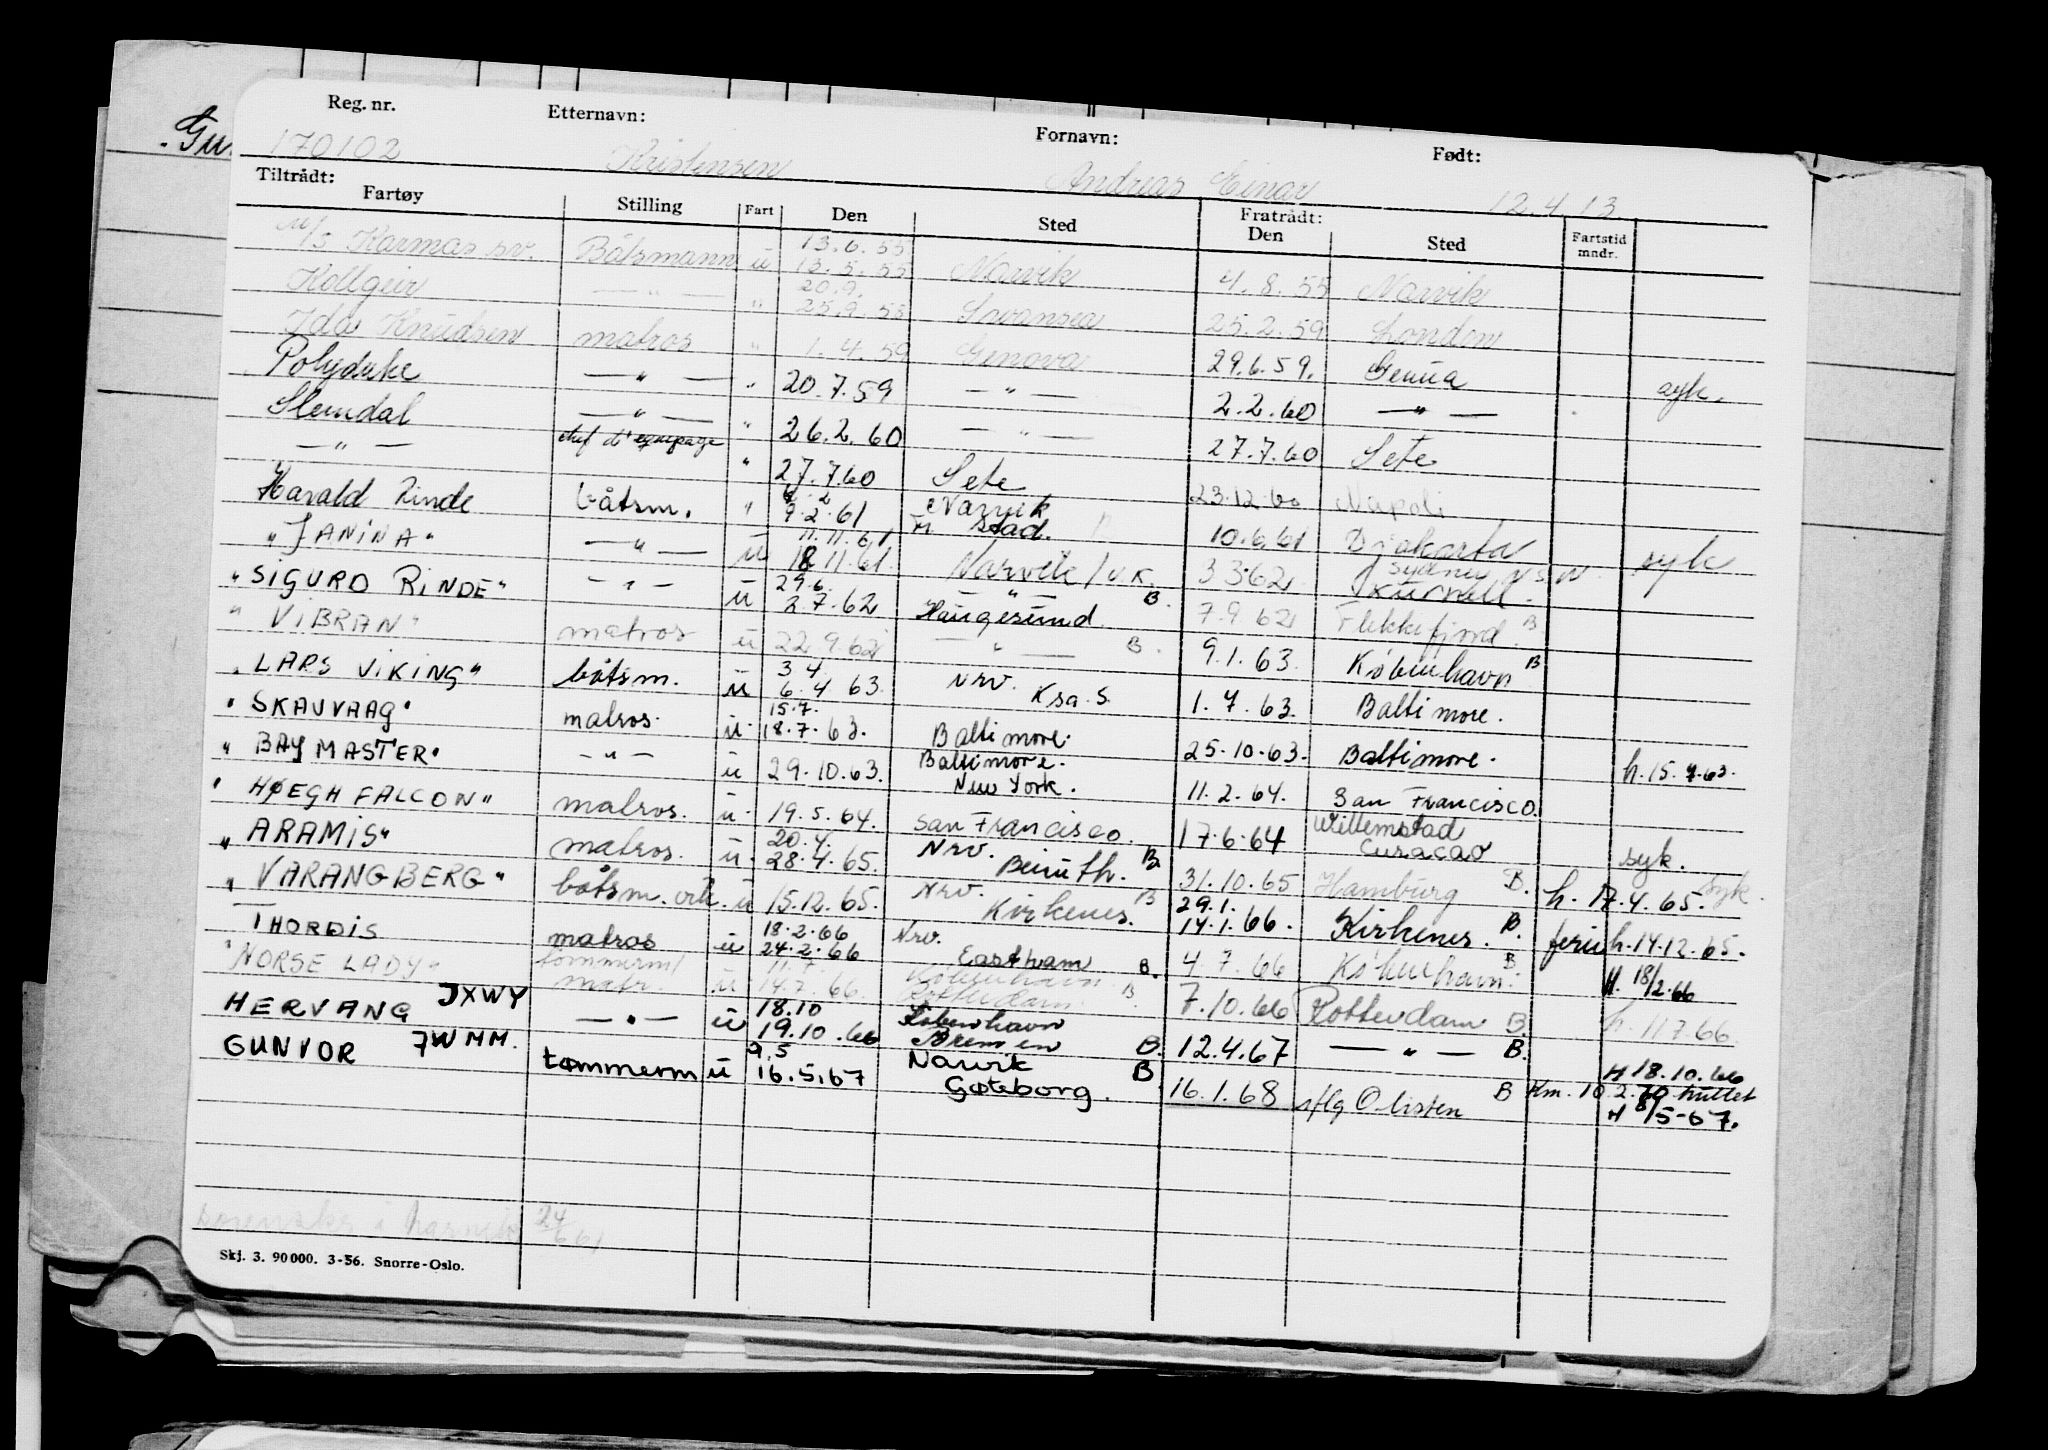 Gu
Reg. nr. Etternavn: Fornavn: Født:
170102 Kristensen Andreas Einar 12.4.13
Tiltrådt: Fratrådt:
Fartøy Stilling Fart Den Sted Den Sted Fartstid mndr.
13.6.55
M/S Karmas sv. Båtsmann u 13.5.55 Narvik 4.8.55 Narvik
20.9.
Kollgeir — " — " 25.9.55 Swansea 25.2.59 London
Ida Knudsen matros " 1.4.59 Genova 29.6.59. Genua syk.
Polyduke — " — " 20.7.59 — " — 2.2.60 — " —
Slemdal — " — " 26.2.60 — " — 27.7.60 Sete
— " — chef d'equipage " 27.7.60 Sete 23.12.60 Napoli
Harald Rinde båtsm. " 9.2.61 Narvik Fr. stad. 10.6.61 Djakarta syk
11.11.61
" JANINA " — " — ü 18.11.61. Narvik / U.K. 3.3.62 Sydney N.S.W. Kurnell.
29.6.
" SIGURD RINDE " — " — ü 2.7.62 — " — Haugesund. B. 7.9.62 Flekkefjord. B
" VIBRAN " matros ü 22.9.62 — " — B. 9.1.63. København B
3.4
" LARS VIKING " båtsm. ü 6.4.63. Nrv. Ksa.S. 1.7.63. Baltimore.
15.7.
" SKAUVAAG " matros. ü 18.7.63. Baltimore. 25.10.63. Baltimore. h.15.7.63.
" BAY MASTER " — " — ü 29.10.63. Baltimore. New York. 11.2.64. San Francisco.
" HØEGH FALCON " matros. ü 19.5.64. San Francisco. 17.6.64 Willemstad Curacao syk.
20.4.
" ARAMIS " matros. ü 28.4.65. Nrv. Beiruth. B. 31.10.65 Hamburg B. h. 17.4.65. syk.
29.1.
" VARANGBERG " båtsm. ü 15.12.65. Nrv. Kirkenes. B 14.1.66. Kirkenes. B. ferie h.14.12.65.
18.2.66
THORDIS matros ü 24.2.66 Nrv. Eastham B. 4.7.66 København. B H. 18/2.66
11.7.
" NORSE LADY " tømmerm/ matr. ü 14.7.66. København. Rotterdam. B. 7.10.66 Rotterdam B. h 11.7.66
18.10
HERVANG JXWY — " — ü 19.10.66 København Bremen B. 12.4.67 — " — B. H 18.10.66
9.5
GUNVOR JWMM. tømmerm ü 16.5.67 Narvik Gøteborg. B 16.1.68 B Km. 10.2.70 H 8/5-67.
24
6 61
Skj. 3. 90 000. 3-56. Snorre-Oslo.